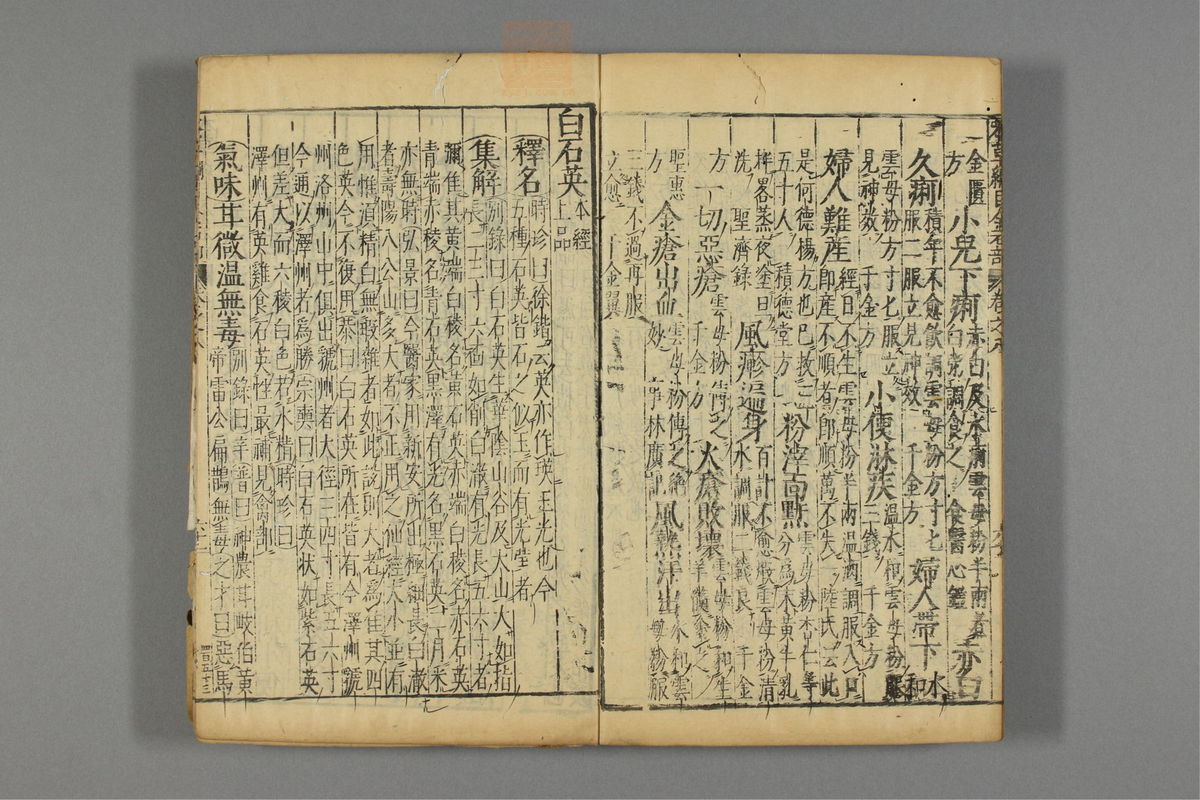 本草綱目金石部 卷之八
方 金匱 小兒下痢 赤白及水痢雲母粉半兩煮
白粥調食之 食醫心鏡 赤白
久痢 積年不愈飲調雲母粉方寸匕
服二服立見神效 千金方 婦人帶下 水和
雲母粉方寸匕服立
見神效 千金方 小便淋疾 溫水和雲母粉服
三錢 千金方
婦人難産 經日不生雲母粉半兩溫酒調服入口
即産不順者即順萬不失一陸氏云此
是何德楊方也已救三
五十人 積德堂方 粉滓面䵟 雲母粉杏仁等
分爲末黃牛乳
拌畧蒸夜塗旦
洗 聖濟錄 風𤺋遍身 百計不愈煅雲母粉清
水調服二錢良 千金
方 一切惡瘡 雲母粉傅之
千金方 火瘡敗壞 雲母粉和生
羊髓塗之
聖惠
方 金瘡出血 雲母粉傅之絶
妙 事林廣記 風熱汗出 水和雲
母粉服
三錢不過再服
立愈 千金翼
白石英 本經
上品
釋名 時珍曰徐鍇云英亦作瑛玉光也今
五種石英皆石之似玉而有光瑩者
集解 別錄曰白石英生華陰山谷及太山大如指
長二三寸六面如削白澈有光長五六寸者
彌佳其黃端白稜名黃石英赤端白稜名赤石英
青端赤稜名青石英黑澤有光名黑石英二月采
亦無時弘景曰今醫家用新安所出極細長白澈
者壽陽八公山多大者不正用之仙經大小並有
用惟須精白無瑕雜者如此說則大者爲佳其四
色英今不復用恭曰白石英所在皆有今澤州虢
州洛州山中俱出虢州者大徑三四寸長五六寸
今通以澤州者爲勝宗奭曰白石英狀如紫石英
但差大而六稜白色若水精時珍曰
澤州有英雞食石英性最補見禽部
氣味甘微溫無毒 別錄曰辛普曰神農甘岐伯黃
帝雷公扁鵲無毒之才曰惡馬